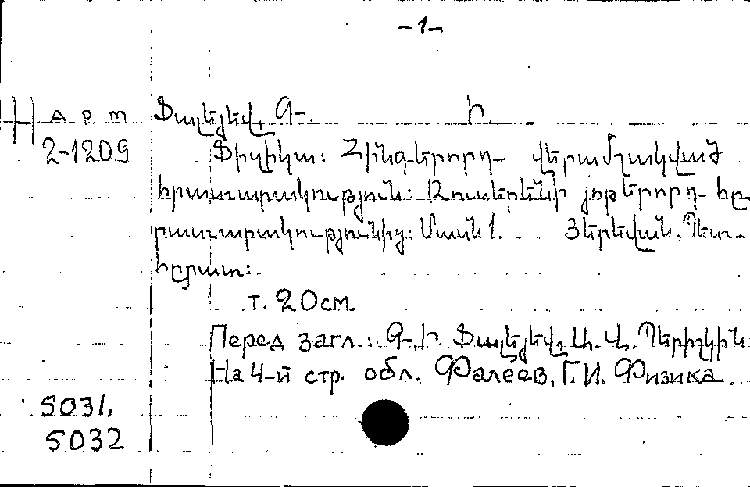 -1-
Н арт Ֆալեյեվ, Գ. Ի.
2-1209 Ֆիզիկա: Հինգերորդ վերամշակված
հրատարակություն: Ռուսերենի յոթերորդ հը
րատարակությունից: Մասն 1. Յերեվան. Պետ.
հըրատ:
т. 20 см
Перед загл.: Գ. Ի Ֆալեյեվ, Ա. Վ. Պերիշկին
На 4-й стр. обл. Фалеев, Г. И. Физика.
5031,
5032